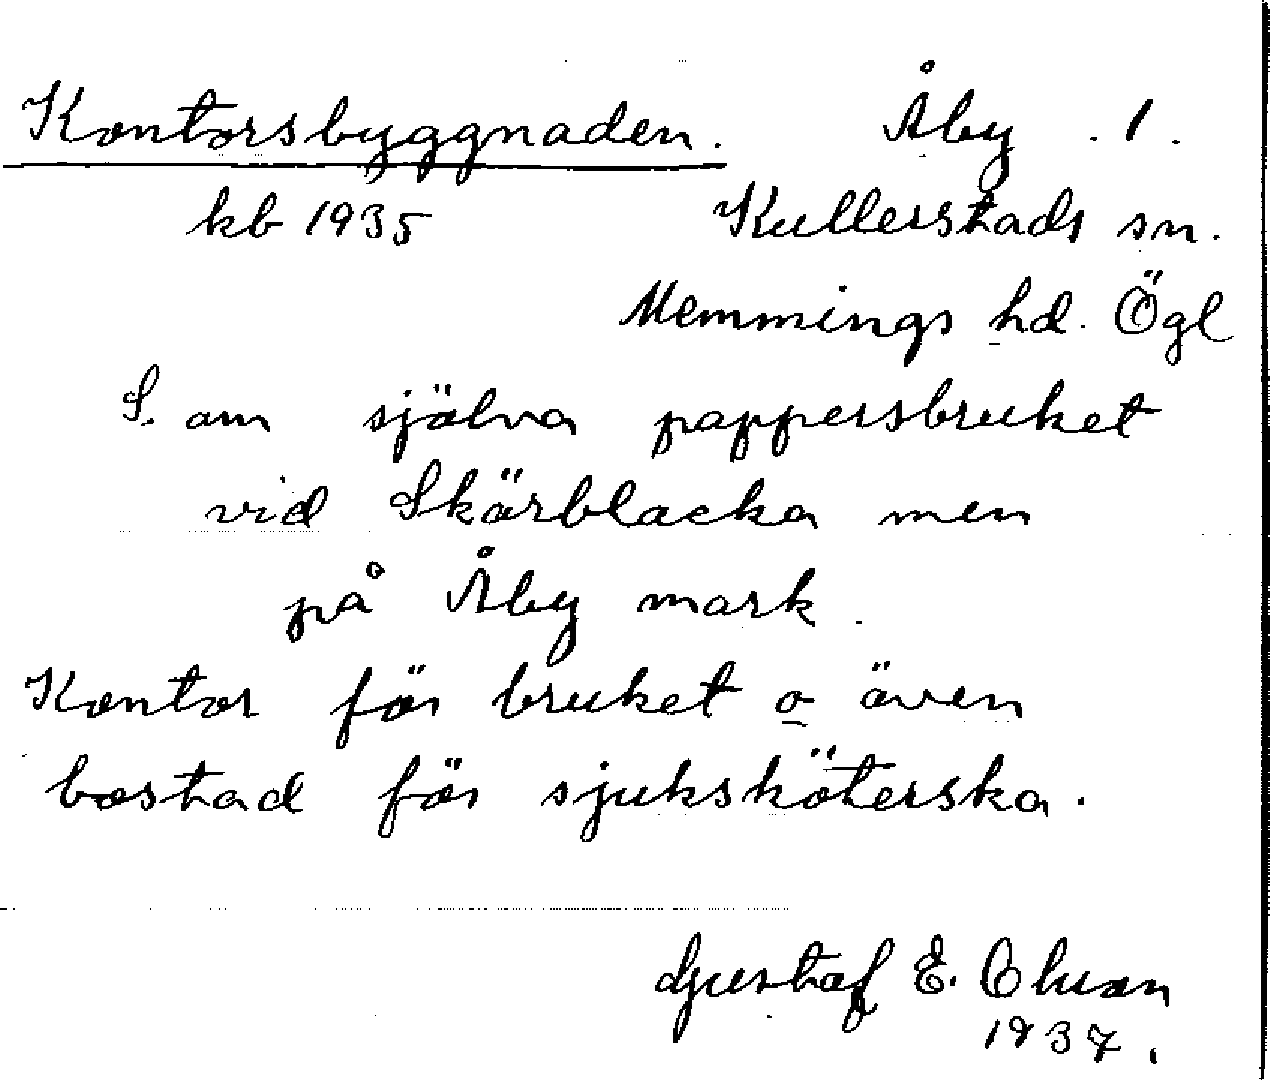 Kontorsbyggnaden. Åby . 1.
kb 1935 Kullerstads sn.
Memmings hd. Ögl
S. om själva pappersbruket
vid Skärblacka men
på Åby mark.
Kontor för bruket o även
bostad för sjuksköterska.
Gustaf E. Olsson
1937.